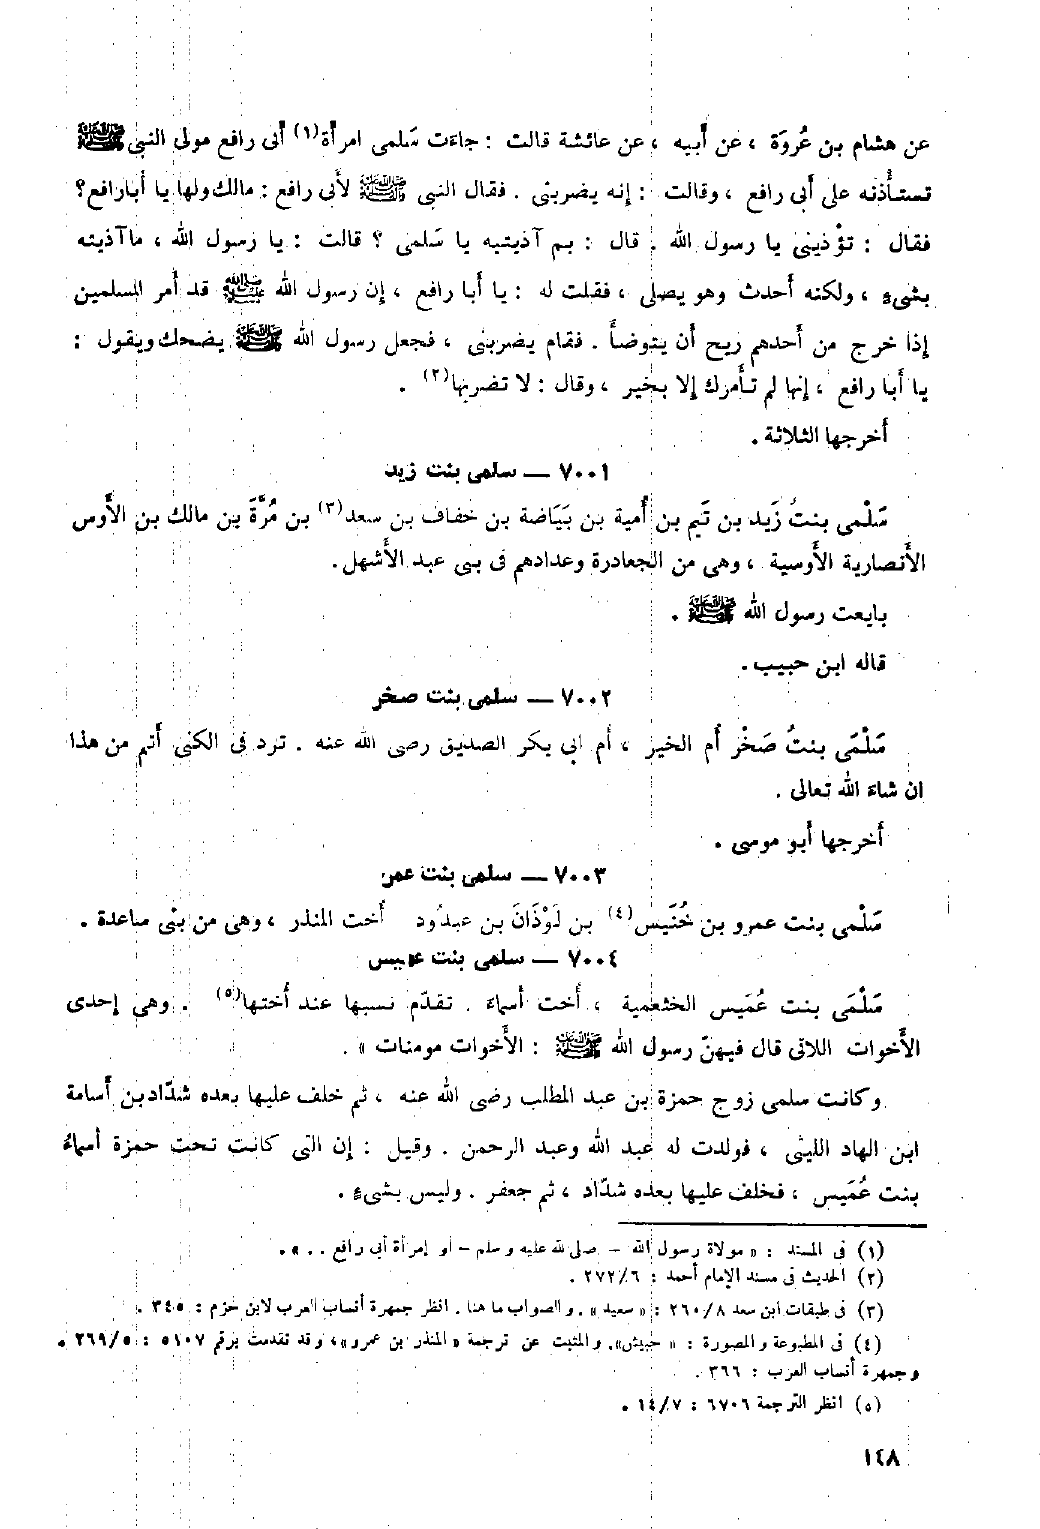 عن هشام بن عُروَة ، عن أَبيه ، عن عائشة قالت : جاءَت سَلمى امرأَة(١) أَبى رافع مولى النبى ﷺ
تستأْذنه على أَبى رافع ، وقالت : إنه يضربنى . فقال النبى ﷺ لأَبى رافع : مالك ولها يا أَبا رافع؟
فقال : تؤْذينى يا رسول الله . قال : بم آذيتيه يا سَلمى ؟ قالت : يا رسول الله ، ما آذيته
بشىءٍ ، ولكنه أَحدث وهو يصلى ، فقلت له : يا أَبا رافع ، إن رسول الله ﷺ قد أَمر المسلمين
إذا خرج من أَحدهم ريح أَن يتوضأَ . فقام يضربنى ، فجعل رسول الله ﷺ يضحك ويقول :
يا أَبا رافع ، إنها لم تأْمرك إلا بخير ، وقال : لا تضربها(٢) .
أَخرجها الثلاثة .
٧٠٠١ — سلمى بنت زيد
سَلْمى بنتُ زَيد بن تَيم بن أُمية بن بَيَاضة بن خفاف بن سعد(٣) بن مُرَّةَ بن مالك بن الأَوس
الأَنصارية الأَوسية ، وهى من الجعادرة وعدادهم فى بنى عبد الأَشهل .
بايعت رسول الله ﷺ .
قاله ابن حبيب .
٧٠٠٢ — سلمى بنت صخر
سَلْمَى بنتُ صَخْر أُم الخير ، أُم أبى بكر الصديق رضى الله عنه . ترد فى الكنى أَتم من هذا
ان شاءَ الله تعالى .
أَخرجها أَبو موسى .
٧٠٠٣ — سلمى بنت عمرو
سَلْمى بنت عمرو بن خُنَيس(٤) بن لَوْذَانَ بن عبدُود أُخت المنذر ، وهى من بنى ساعدة .
٧٠٠٤ — سلمى بنت عميس
سَلْمَى بنت عُمَيس الخثعمية ، أُخت أَسماءَ . تقدّم نسبها عند أُختها(٥) . وهى إحدى
الأَخوات اللاتى قال فيهنّ رسول الله ﷺ : الأَخوات مومنات » .
وكانت سلمى زوج حمزة بن عبد المطلب رضى الله عنه ، ثم خلف عليها بعده شدّاد بن أُسامة
ابن الهاد الليثى ، فولدت له عبد الله وعبد الرحمن . وقيل : إن التى كانت تحت حمزة أَسماءُ
بنت عُمَيس ، فخلف عليها بعده شدّاد ، ثم جعفر . وليس بشىءٍ .
(١) فى المسند : « مولاة رسول الله – صلى لله عليه وسلم – أو إمرأة أبى رافع . . » .
(٢) الحديث فى مسند الإمام أحمد : ٢٧٢/٦ .
(٣) فى طبقات ابن سعد ٢٦٠/٨ : « سعيد » . والصواب ما هنا . انظر جمهرة أنساب العرب لابن حزم : ٣٤٥ .
(٤) فى المطبوعة والمصورة : « حبيش» . والمثبت عن ترجمة « المنذر بن عمرو» ، وقد تقدمت برقم ٥١٠٧ : ٢٦٩/٥ .
وجمهرة أنساب العرب : ٣٦٦ .
(٥) انظر الترجمة ٦٧٠٦ : ١٤/٧ .
١٤٨